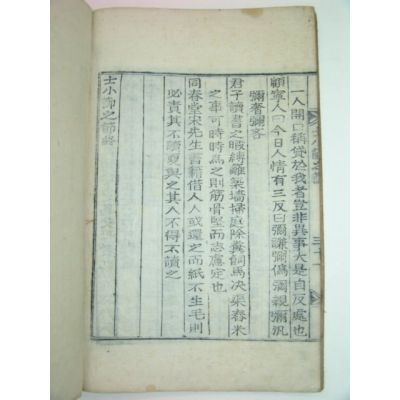 一人開口稱貸於我者豈非異事大是自反處也
顧寧人曰今日人情有三反曰彌謙彌僞彌親彌汎
彌奢彌吝
君子讀書之暇縛籬築墻掃庭除糞飼馬决渠舂米
之事可時時為之則筋骨堅而志慮定也
同春堂宋先生書籍借人人或還之而紙不生毛則
必責其不讀更與之其人不得不讀之
士小節之節終